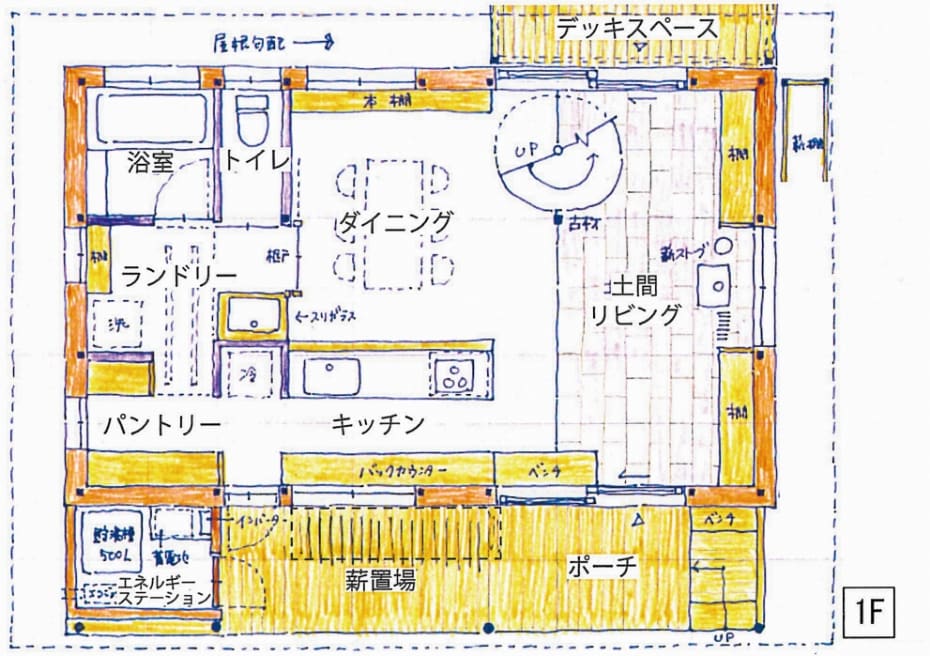 デッキスペース
屋根勾配
本棚
浴室
トイレ
UP
棚
薪棚
ダイニング
古材
棚
ランドリー
框戸
薪ストーブ
土間
リビング
←スリガラス
洗
冷
棚
パントリー
キッチン
バックカウンター
ベンチ
インバータ
ベンチ
貯湯槽
500L
蓄電池
エネルギー
ステーション
薪置場
ポーチ
UP
1F